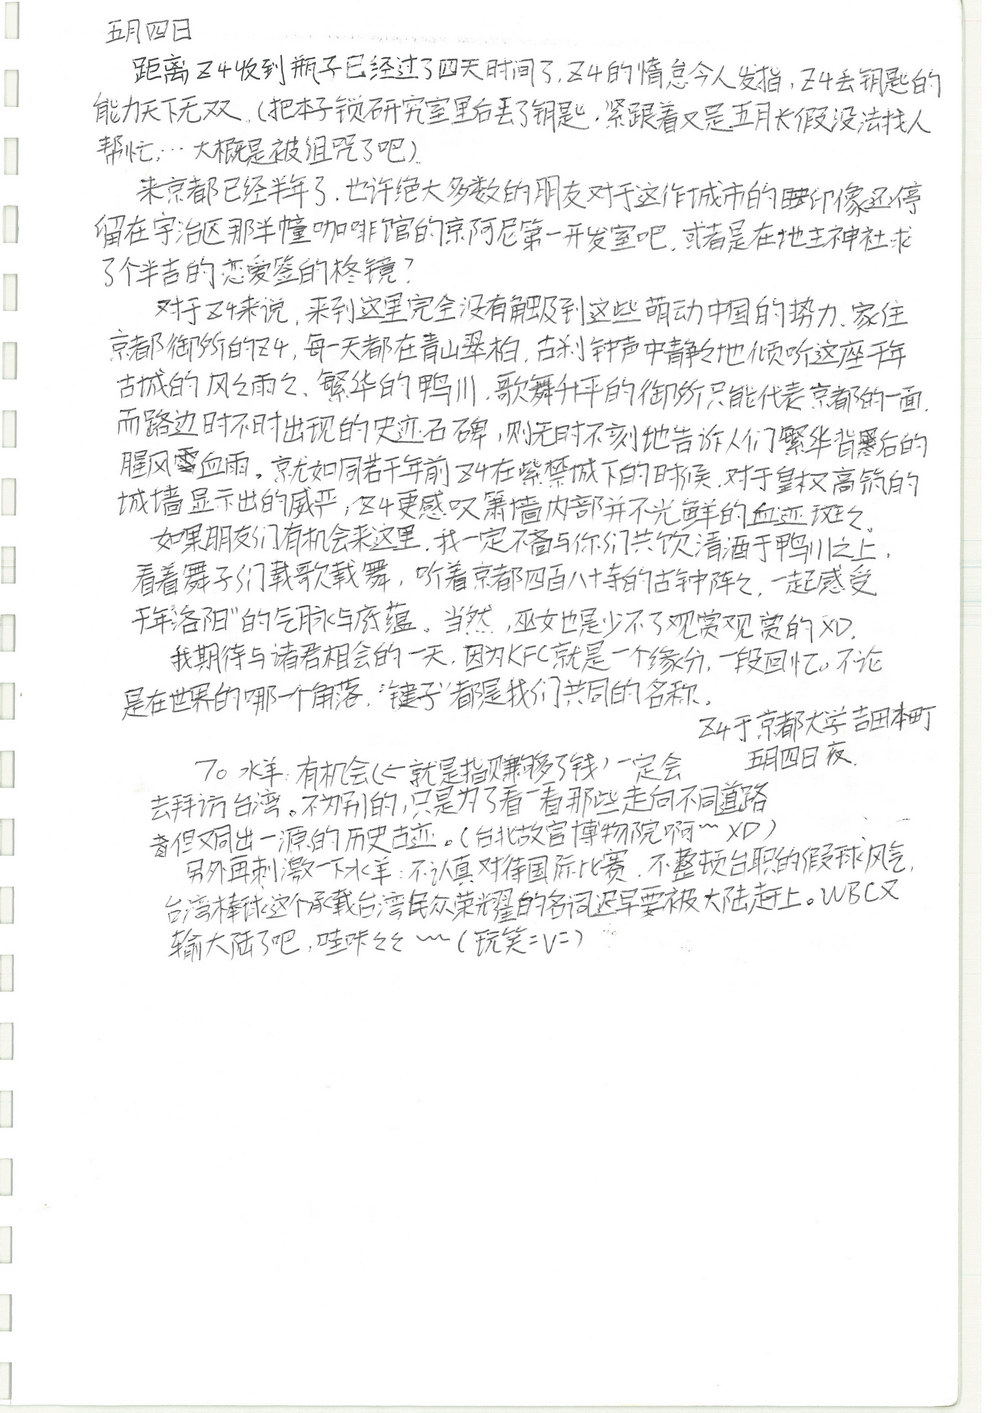 五月四日
距离Z4收到瓶子已经过了四天时间了,Z4的惰怠令人发指,Z4丢钥匙的
能力天下无双.(把本子锁研究室里后丢了钥匙,紧跟着又是五月长假没法找人
帮忙,…大概是被诅咒了吧)
来京都已经半年了,也许绝大多数的朋友对于这作城市的印像还停
留在宇治区那半幢咖啡馆的京阿尼第一开发室吧,或者是在地主神社求
了个半吉的恋爱签的柊镜?
对于Z4来说,来到这里完全没有触及到这些萌动中国的势力,家住
京都御所的Z4,每一天都在青山翠柏,古刹钟声中静々地倾听这座千年
古城的风々雨々、繁华的鸭川,歌舞升平的御所只能代表京都的一面,
而路边时不时出现的史迹石碑,则无时不刻地告诉人们繁华背后的
腥风血雨。就如同若干年前Z4在紫禁城下的时候,对于皇权高筑的
城墙显示出的威严,Z4更感叹萧墙内部并不光鲜的血迹斑々。
如果朋友们有机会来这里,我一定不吝与你们共饮清酒于鸭川之上,
看着舞子们载歌载舞,听着京都四百八十寺的古钟阵々,一起感受
“千年洛阳”的气脉与底蕴。当然,巫女也是少不了观赏观赏的XD.
我期待与诸君相会的一天,因为KFC就是一个缘分,一段回忆。不论
是在世界的哪一个角落,“键子”都是我们共同的名称。
Z4于京都大学吉田本町
五月四日夜.
To 水羊:有机会(←就是指赚够了钱)一定会
去拜访台湾。不为别的,只是为了看一看那些走向不同道路
但又同出一源的历史古迹。(台北故宫博物院啊~XD)
另外再刺激一下水羊:不认真对待国际比赛,不整顿台职的假球风气,
台湾棒球这个承载台湾民众荣光耀的名词迟早要被大陆赶上。WBC又
输大陆了吧,哇咔々々~~(玩笑=V=)